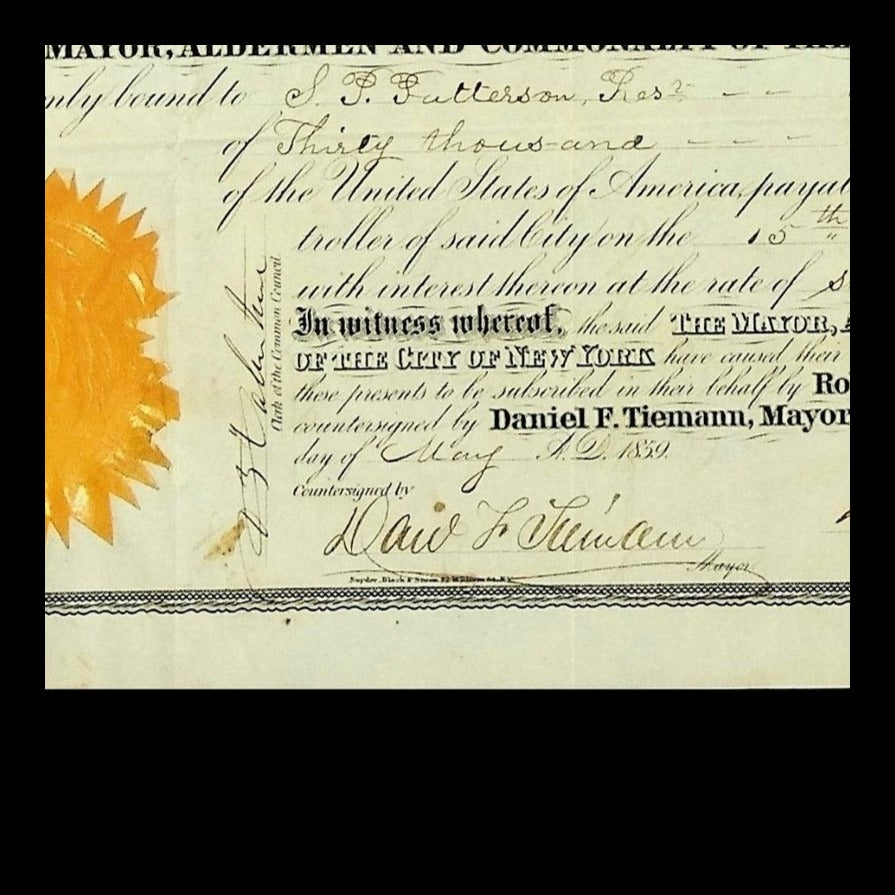 MAYOR, ALDERMEN AND COMMONALTY OF THE
mly bound to S. P. Patterson, Tres.r
of Thirty thousand
of the United States of America, payab
troller of said City on the 15th
with interest thereon at the rate of s
In witness whereof, the said THE MAYOR, A
OF THE CITY OF NEW YORK have caused their
these presents to be subscribed in their behalf by Ro
countersigned by Daniel F. Tiemann, Mayor
day of May A.D. 1859.
Countersigned by
Dan'l F Tiemann
Mayor
Snyder, Black & Sturn 92 William St. N.Y.
Clerk of the Common Council